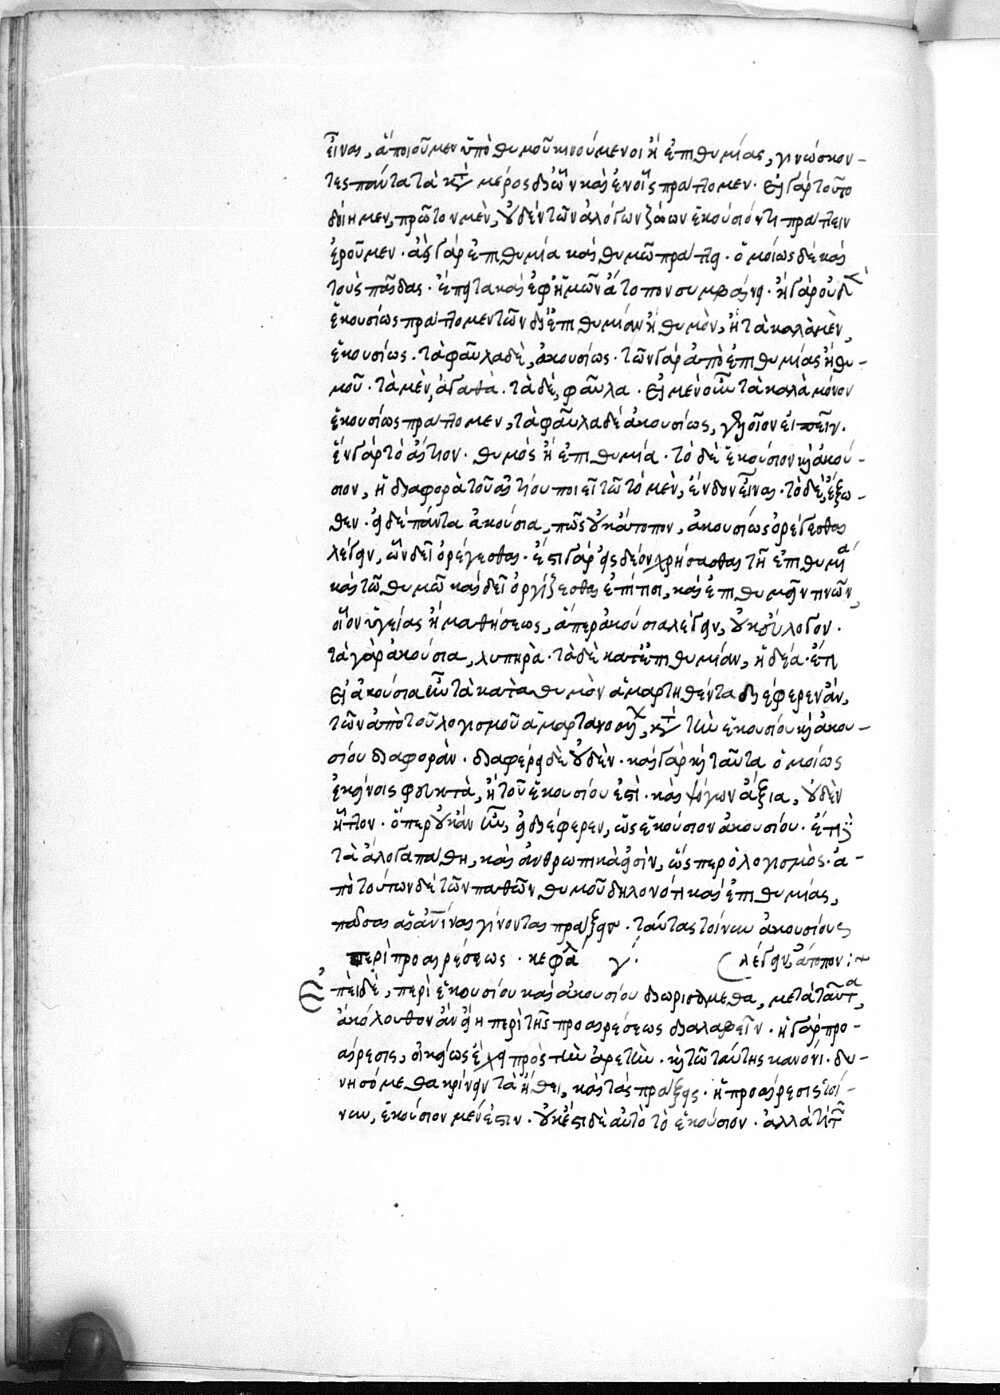 εἶναι, ἃ ποιοῦμεν ὑπὸ θυμοῦ κινούμενοι ἢ ἐπιθυμίας, γινώσκον-
τες πάντα τὰ κατὰ μέρος δι' ὧν καὶ ἐν οἷς πράττομεν. εἰ γὰρ τοῦτο
δώημεν, πρῶτον μὲν, οὐδὲν τῶν ἀλόγων ζώων ἑκούσιόν τι πράττειν
ἐροῦμεν. ἀεὶ γὰρ ἐπιθυμία καὶ θυμῶ πράττει. ὁμοίως δὲ καὶ
τοὺς παῖδας. ἔπειτα καὶ ἐφ' ἡμῶν ἄτοπον συμβαίνει. ἢ γὰρ οὐδὲν
ἑκουσίως πράττομεν τῶν δι' ἐπιθυμίαν ἢ θυμὸν, ἢ τὰ καλὰ μὲν,
ἑκουσίως. τὰ φαῦλα δὲ, ἀκουσίως. τῶν γὰρ ἀπὸ ἐπιθυμίας ἢ θυ-
μοῦ. τὰ μὲν, ἀγαθά. τὰ δὲ, φαῦλα. εἰ μὲν οὖν τὰ καλὰ μόνον
ἑκουσίως πράττομεν, τὰ φαῦλα δὲ ἀκουσίως, γελοῖον εἰπεῖν.
ἓν γὰρ τὸ αἴτιον. θυμὸς ἢ ἐπιθυμία. τὸ δὲ ἑκούσιον καὶ ἀκού-
σιον, ἡ διαφορὰ τοῦ αἰτίου ποιεῖ τῶ τὸ μὲν, ἔνδον εἶναι. τὸ δὲ, ἔξω-
θεν. εἰ δὲ πάντα ἀκούσια, πῶς οὐκ ἄτοπον, ἀκουσίως ὀρέγεσθαι
λέγειν, ὧν δεῖ ὀρέγεσθαι. ἔστι γὰρ εἰς δέον χρήσασθαι τῆ ἐπιθυμία
καὶ τῶ θυμῶ καὶ δεῖ ὀργίζεσθαι ἐπί τισι, καὶ ἐπιθυμεῖν τινῶν,
οἷον ὑγείας ἢ μαθήσεως, ἅπερ ἀκούσια λέγειν, οὐκ εὔλογον.
τὰ γὰρ ἀκούσια, λυπηρὰ. τὰ δὲ κατ' ἐπιθυμίαν, ἡδέα. ἔτι
εἰ ἀκούσια ἦν τὰ κατὰ θυμὸν ἁμαρτηθέντα διέφερεν ἂν,
τῶν ἀπὸ τοῦ λογισμοῦ ἁμαρτανομένων, κατὰ τὴν ἑκουσίου καὶ ἀκου-
σίου διαφορὰν. διαφέρει δὲ οὐδὲν. καὶ γὰρ καὶ ταῦτα ὁμοίως
ἐκείνοις φευκτὰ, ἢ τοῦ ἑκουσίου ἐστὶ. καὶ ψόγων ἄξια, οὐδὲν
ἧττον. ὅπερ οὐκ ἂν ἦν, εἰ διέφερεν, ὡς ἑκούσιον ἀκουσίου. ἔτι
τὰ ἄλογα πάθη, καὶ ἀνθρωπικὰ εἰσὶν, ὥσπερ ὁ λογισμὸς. ἀ-
πὸ τούτων δὲ τῶν παθῶν θυμοῦ δηλονότι καὶ ἐπιθυμίας,
πᾶσαι αἱ ἄν τινας γίνονται πράξεις. ταύτας τοίνυν ἀκουσίους
περὶ προαιρέσεως. κεφάλ γ΄. ( λέγειν, ἄτοπον :+
Ἐπειδὲ, περὶ ἑκουσίου καὶ ἀκουσίου διωρίσμεθα, μετὰ ταῦτα,
ἀκόλουθον ἂν εἴη περὶ τῆς προαιρέσεως διαλαβεῖν. ἡ γὰρ προ-
αίρεσις, οἰκείως ἔχει πρὸς τὴν ἀρετὴν. καὶ τῶ ταύτης κανόνι. δυ-
νησόμεθα κρίνειν τὰ ἤθη, καὶ τὰς πράξεις. ἡ προαίρεσις τοί-
νυν, ἑκούσιον μέν ἐστιν. οὐκ ἔστι δὲ αὐτὸ τὸ ἑκούσιον. ἀλλά τι τῶν